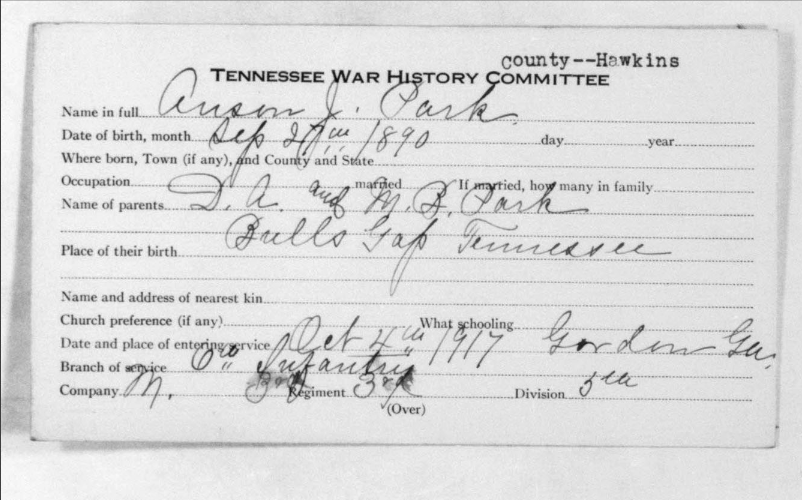 county--Hawkins
TENNESSEE WAR HISTORY COMMITTEE
Name in full Anson J. Park.
Date of birth, month Sep 27th 1890 day year
Where born, Town (if any), and County and State
Occupation married If married, how many in family
Name of parents D. A. and M. B. Park
Bulls Gap Tennessee
Place of their birth
Name and address of nearest kin
Church preference (if any) What schooling
Date and place of entering service Oct 4th 1917 Gordon Ga.
Branch of service 6th Infantry
Company M. Regiment Division 5th
(Over)